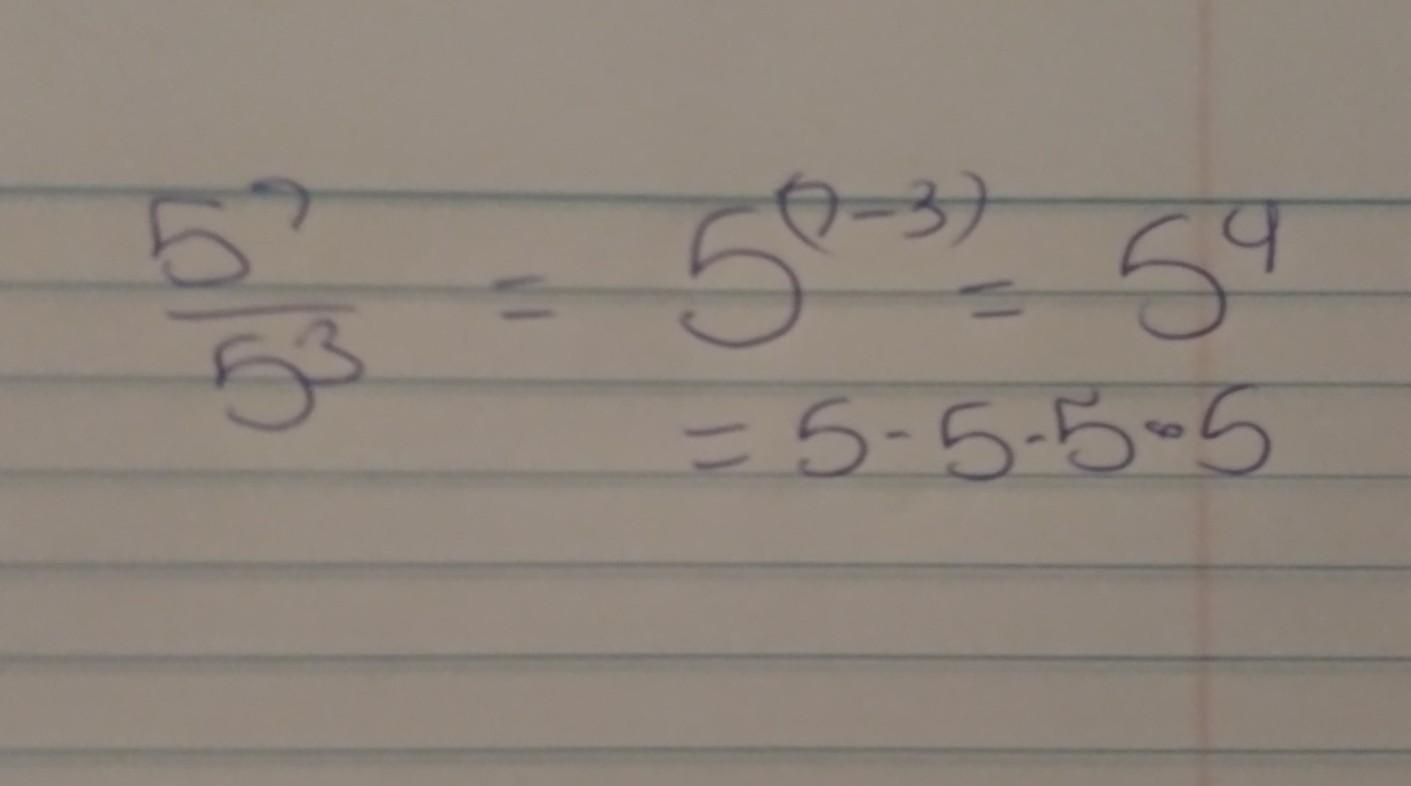 5⁷/5³ = 5⁽⁷⁻³⁾ = 5⁴
= 5·5·5·5